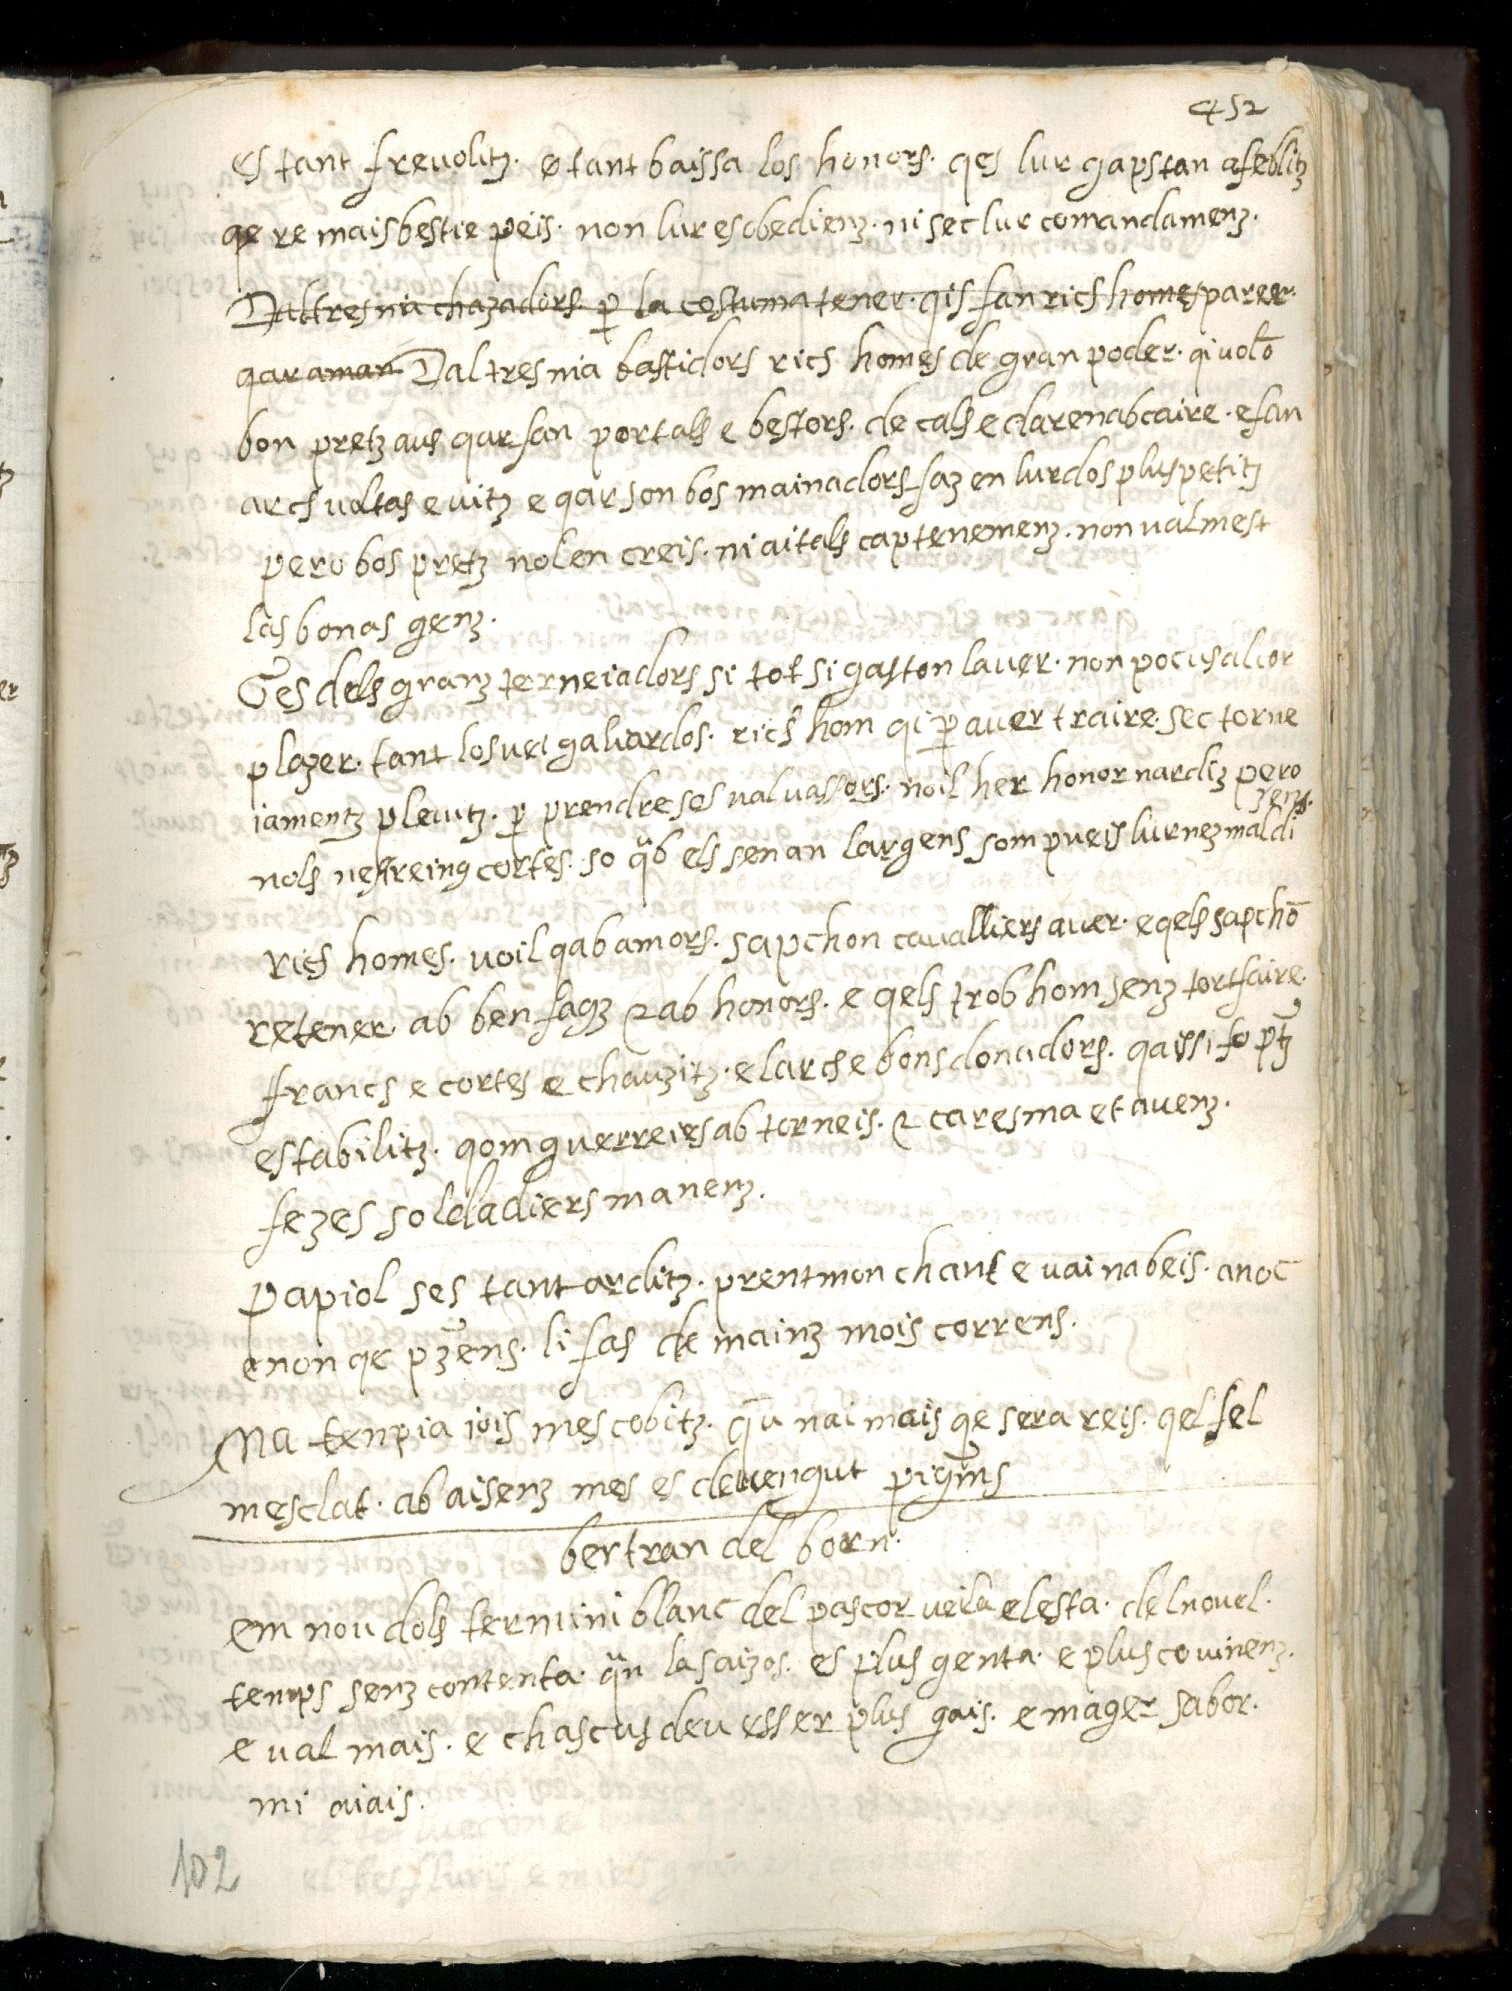 452
es tant freuolitz. e tant baissa los honors. qes lur gapstan afeblitz
qe re mais bestie peis. non lur es obedienz. ni sec lur comandamenz.
Daltres nia chazadors. p̱ la costuma tener. qis fan rics homes parer.
qar aman Daltres nia bastidors rics homes de gran poder. qi volō
bon pretz aus qar fan portals e bestors. de cals e darenabcaire. e fan
arcs voltas e vitz e qar son bos mainadors faz en lurdos plus petitz
pero bos pretz nolen creis. ni aitals captenemenz. non val mest
las bonas genz.
Ges dels granz terneiadors si tot si gaston laver. non pocus al cor
plazer. tant los vei galiardos. rics hom qi p̱ aver traire. sec torne
iamentz plevitz. p̱ prendre ses valvassors. noil her honor narditz pero
nols nefreing cortes. so qͣb els sen an largens som pueis lur nez maldi
zens.
rics homes. voil qab amors. sapchon cavalliers aver. e qels sapchō
retener. ab ben fagz ⁊ ab honors. e qels trob hom senz tortfaire.
francs e cortes e chauzitz. e larcs e bons donadors. qaissi fo p̄tz
estabilitz. qom guerreies ab torneis. ⁊ caresma et avenz.
fezes soldadiers manenz.
Papiol ses tant arditz. prent mon chant e vai nabeis. anoc
enon qe pz̄ens. li fas de mainz mois correns.
Na tenpia iois mes cobitz. qu̅ nai mais qe sera reis. qel fel
mesclat. ab aisenz mes es devengut pigm̅s
bertran del born.
em nou dols termini blanc del pascor vei la elesta. del novel.
temps senz contenta. qͣn la saizos. es plus genta. e plus covinenz.
e val mais. e chascus deu esser plus gais. e mager sabor.
mi aiais.
102